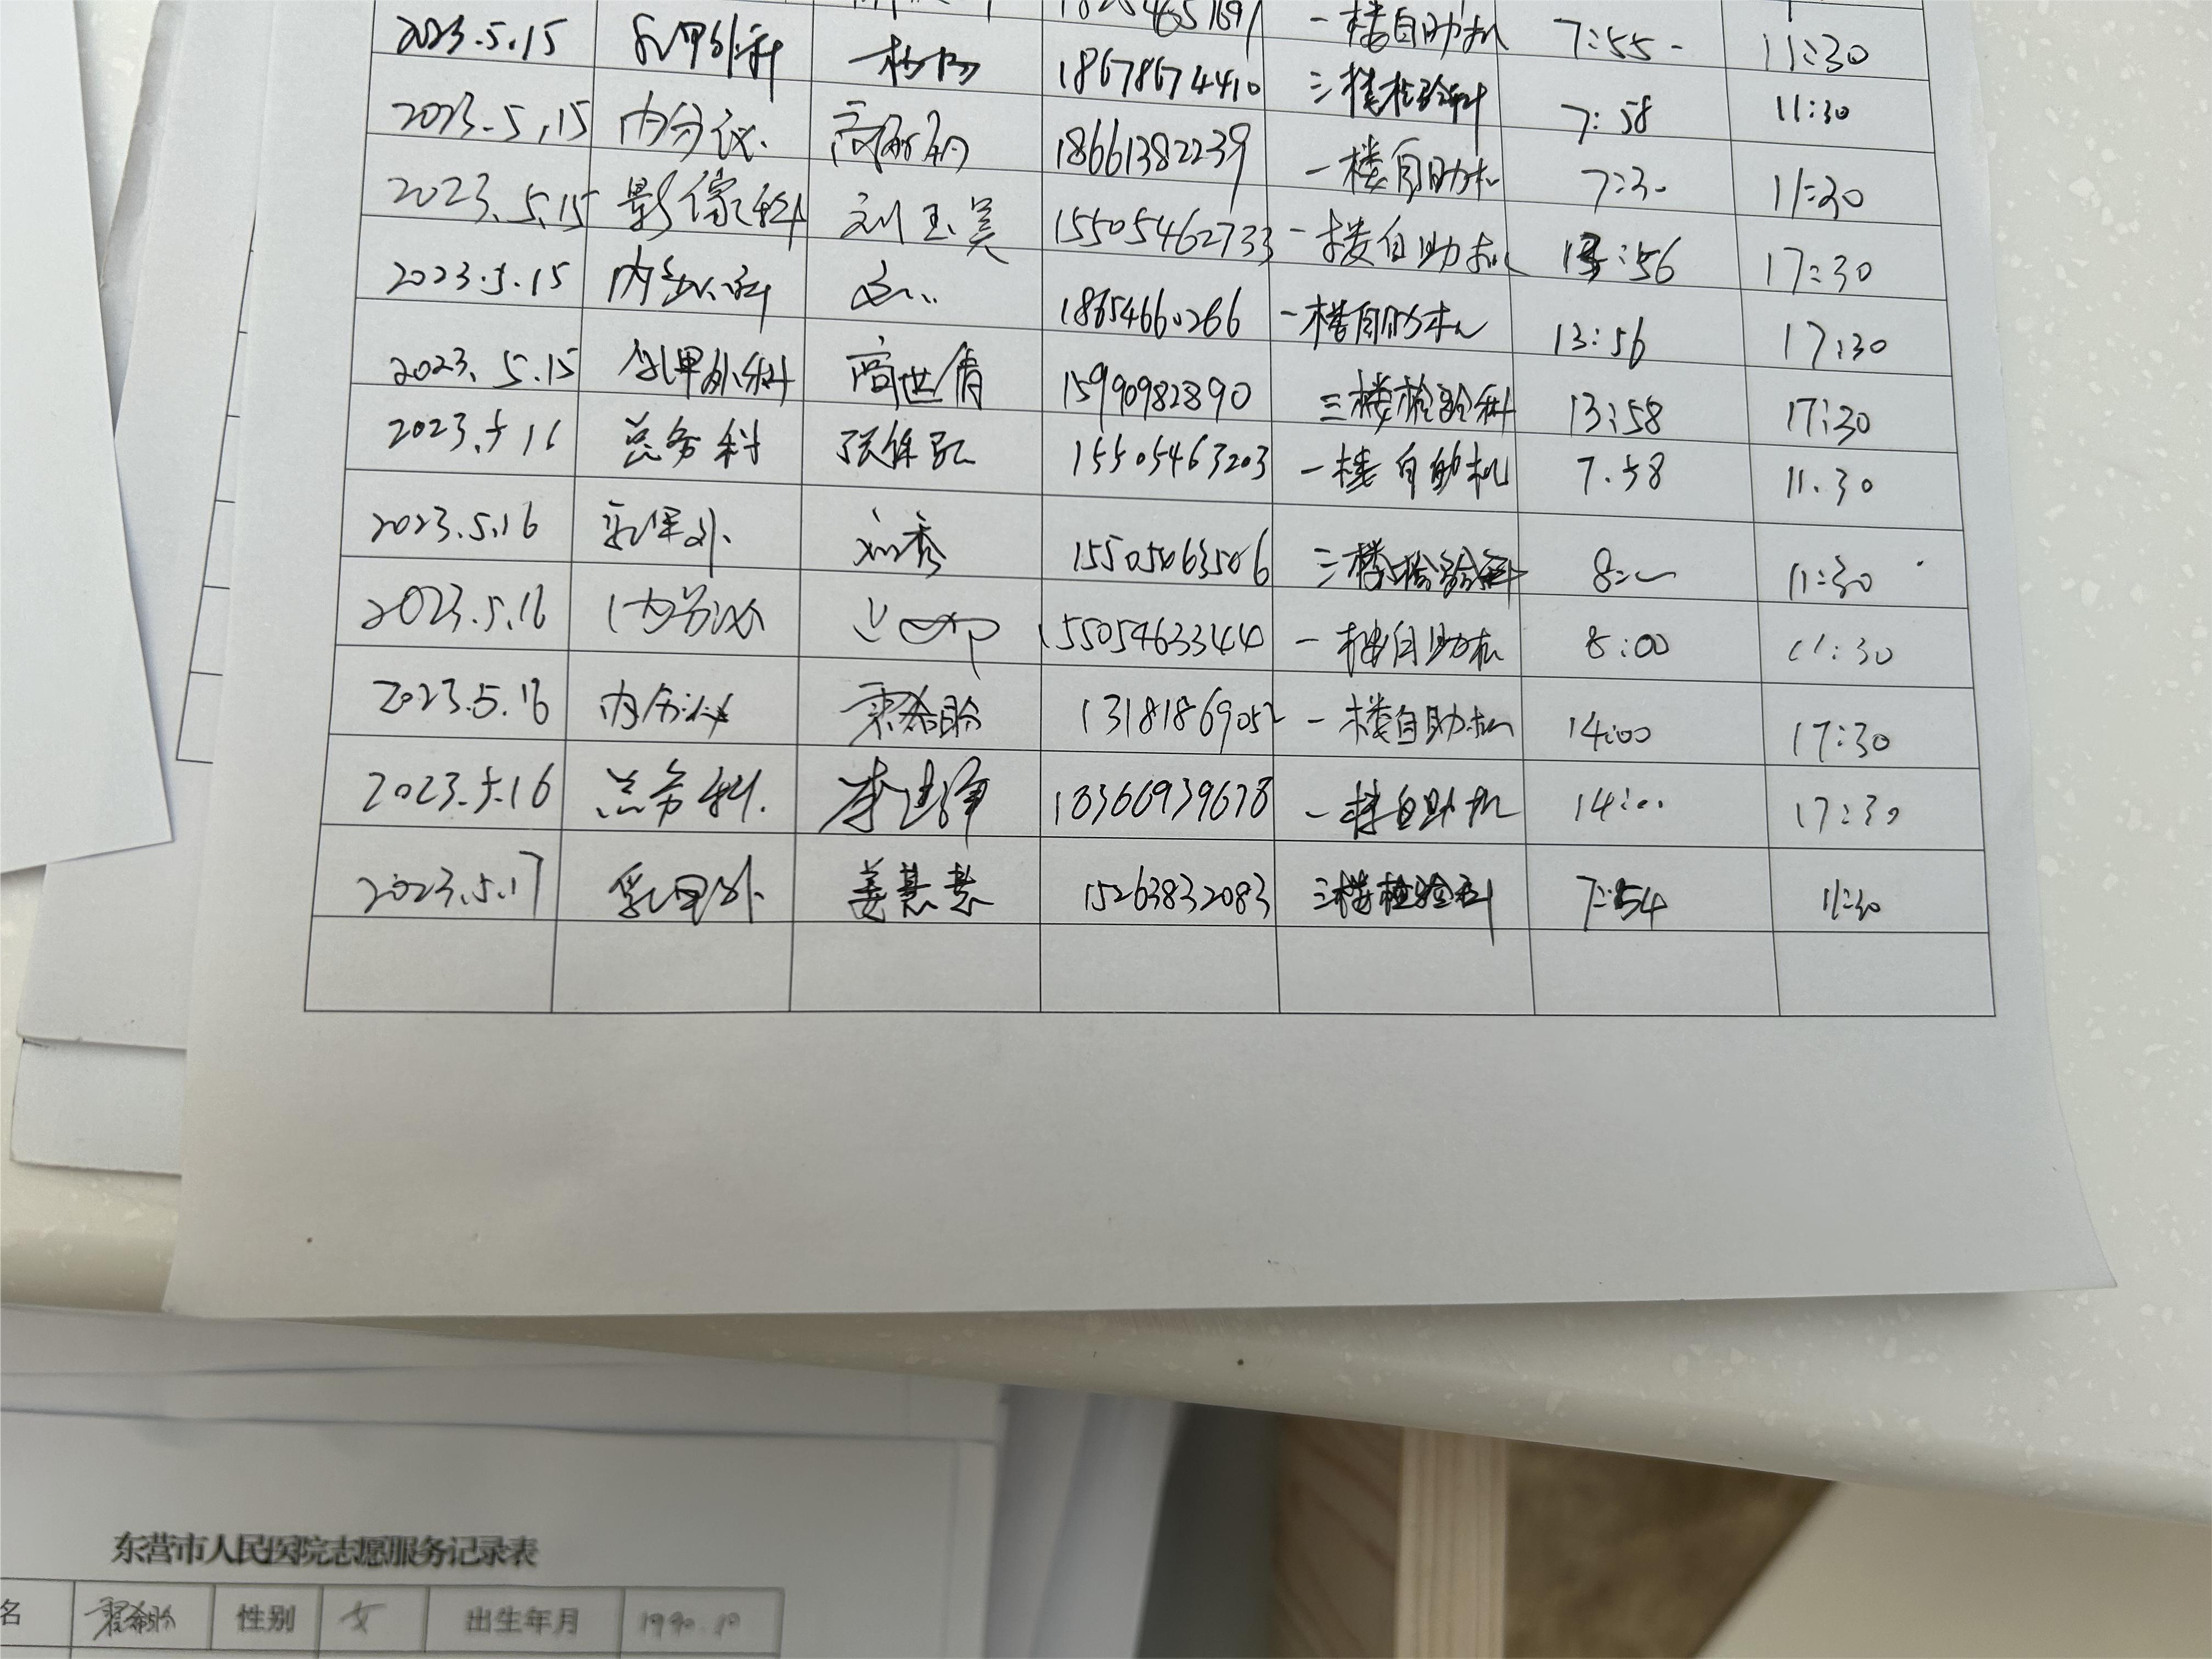 一楼自助机 7:55 11:30
2023.5.15 乳甲外科 杨 18678674410 三楼检验科 7:58 11:30
2023.5.15 内分泌 18661382239 一楼自助机 7:30 11:30
2023.5.15 影像科 刘玉美 15505462733 一楼自助机 13:56 17:30
2023.5.15 内分泌科 一楼自助机 13:56 17:30
2023.5.15 乳甲外科 商世倩 15990982890 三楼检验科 13:58 17:30
2023.5.16 总务科 15505463203 一楼自助机 7.58 11.30
2023.5.16 乳甲外 刘秀 三楼检验科 8:00 11:30
2023.5.16 内分泌 15505463344 一楼自助机 8:00 11:30
2023.5.16 内分泌 13181869052 一楼自助机 14:00 17:30
2023.5.16 总务科 李建军 18366939678 一楼自助机 14:00 17:30
2023.5.17 乳甲外 姜慧慧 15263832083 三楼检验科 7:54 11:30
东营市人民医院志愿服务记录表
名 性别 女 出生年月 1990.10